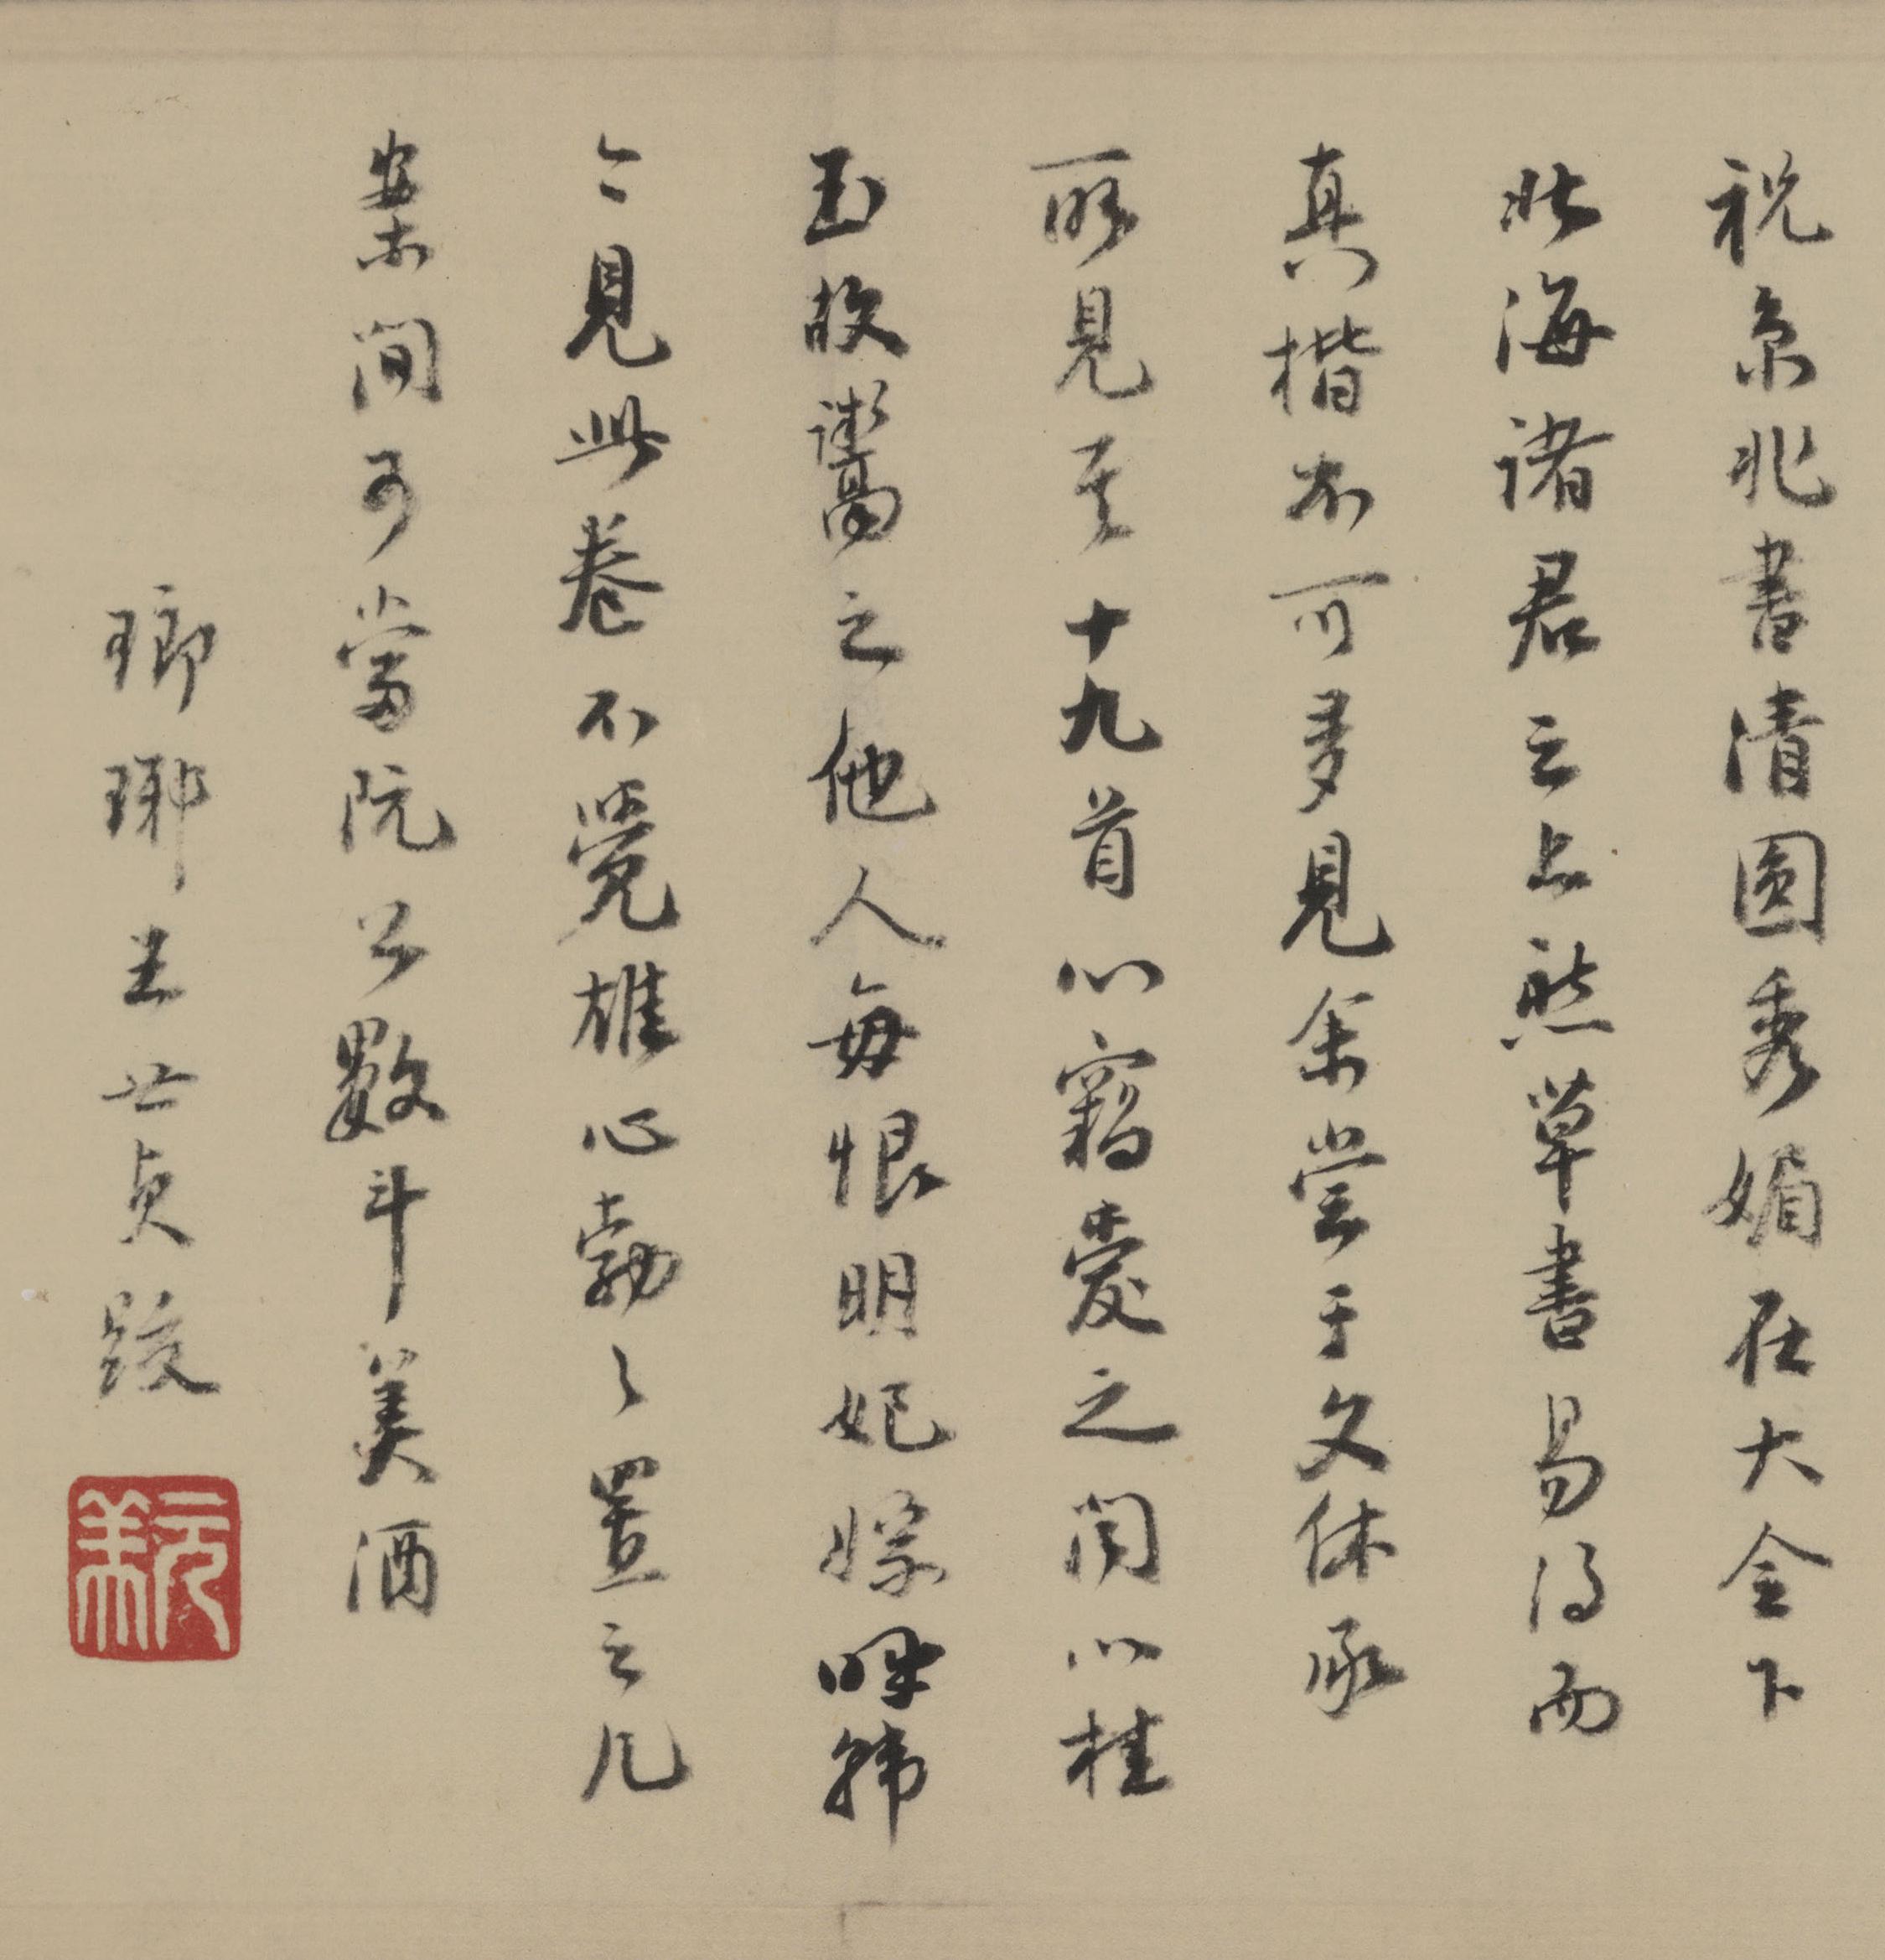 祝京兆書清圓秀媚在大令下
北海諸君之上然草書易得而
真楷不可多見余嘗于文休承
所見其十九首心竊愛之閒以桂
玉故鬻之他人每恨明妃嫁呼韓
今見此卷不覺雄心勃〻置之几
案間可當阮公數斗美酒
瑯琊王世貞跋
元美